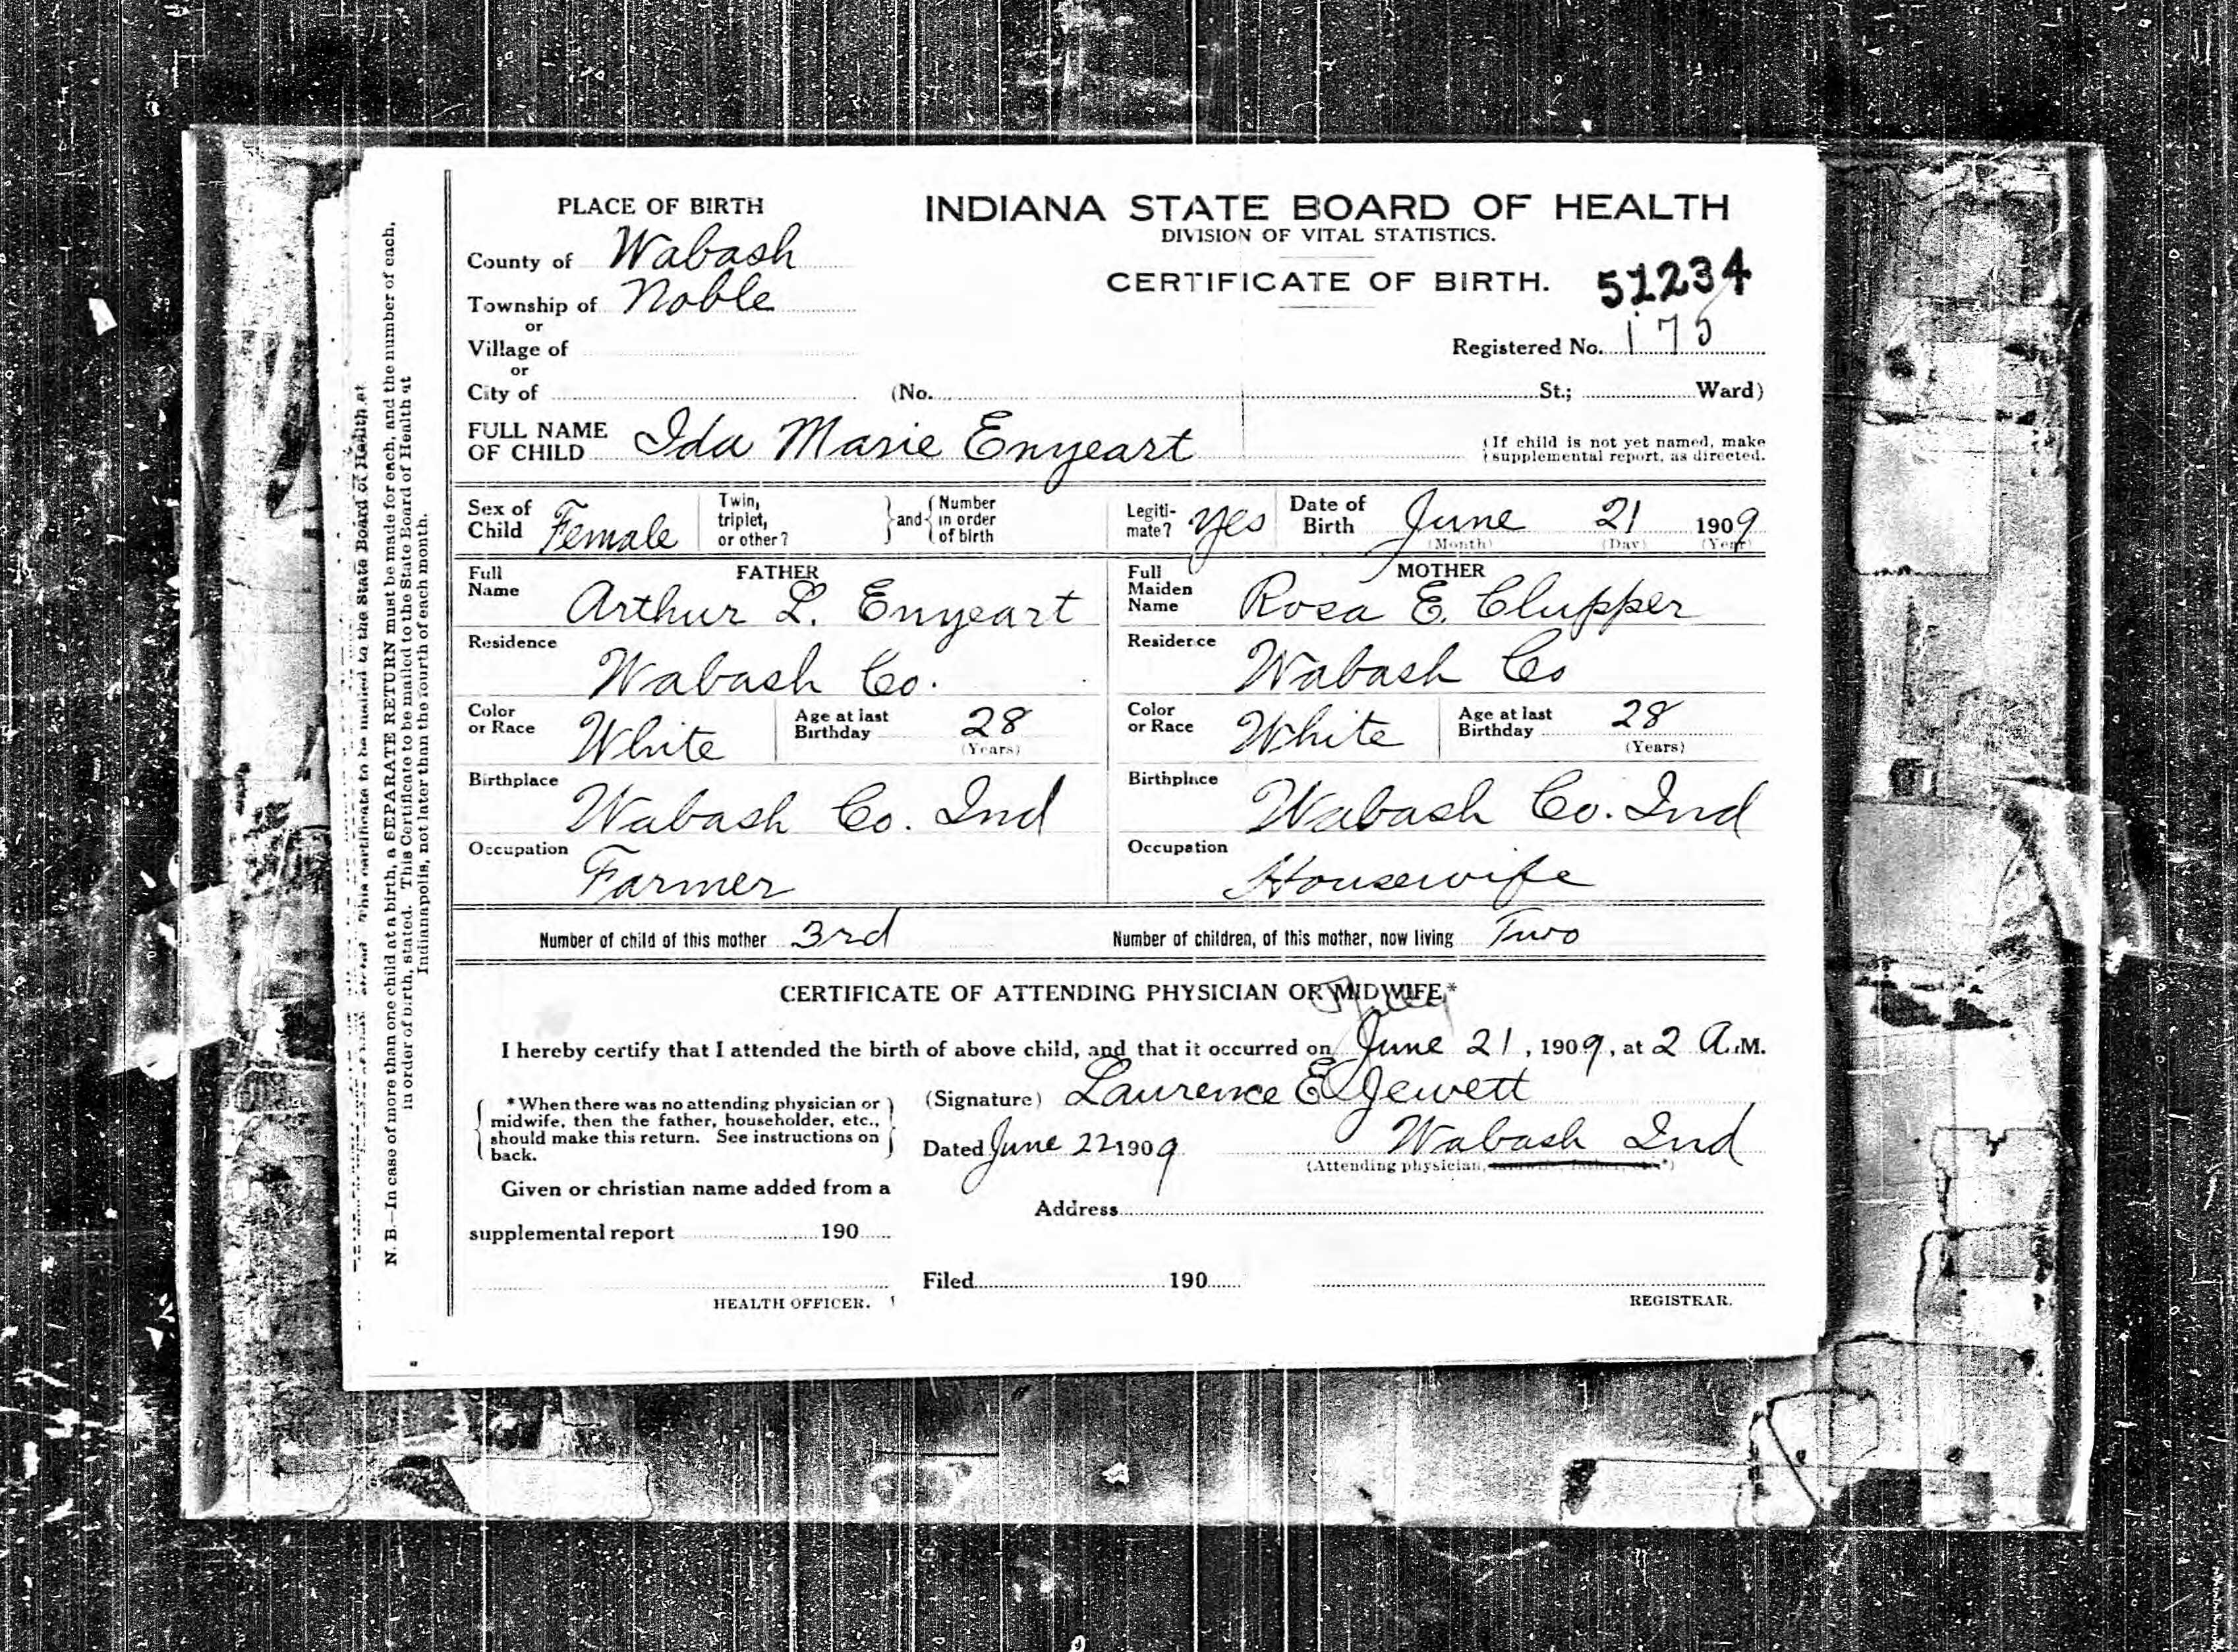 PLACE OF BIRTH
County of Wabash
Township of Noble
or
Village of
or
City of
INDIANA STATE BOARD OF HEALTH
DIVISION OF VITAL STATISTICS.
CERTIFICATE OF BIRTH. 51234
Registered No. 175
(No. St.; Ward)
FULL NAME
OF CHILD Ida Marie Enyeart
(If child is not yet named, make
supplemental report, as directed.
Sex of
Child Female
Twin,
triplet,
or other?
and
Number
in order
of birth
Legiti-
mate? Yes
Date of
Birth June 21 1909
(Month) (Day) (Year)
FATHER
Full
Name Arthur L. Enyeart
Residence
Wabash Co.
Color
or Race White
Age at last
Birthday 28
(Years)
Birthplace
Wabash Co. Ind
Occupation
Farmer
MOTHER
Full
Maiden
Name Rosa E. Clupper
Residence
Wabash Co
Color
or Race White
Age at last
Birthday 28
(Years)
Birthplace
Wabash Co. Ind
Occupation
Housewife
Number of child of this mother 3rd
Number of children, of this mother, now living Two
CERTIFICATE OF ATTENDING PHYSICIAN OR MIDWIFE*
I hereby certify that I attended the birth of above child, and that it occurred on June 21, 1909, at 2 A.M.
* When there was no attending physician or
midwife, then the father, householder, etc.,
should make this return. See instructions on
back.
(Signature) Laurence E Jewett
Dated June 22 1909
Wabash Ind
(Attending physician,
Given or christian name added from a
supplemental report 190
Address
Filed 190
HEALTH OFFICER.
REGISTRAR.
N. B.—In case of more than one child at a birth, a SEPARATE RETURN must be made for each, and the number of each,
in order of birth, stated. This Certificate to be mailed to the State Board of Health at
Indianapolis, not later than the fourth of each month.